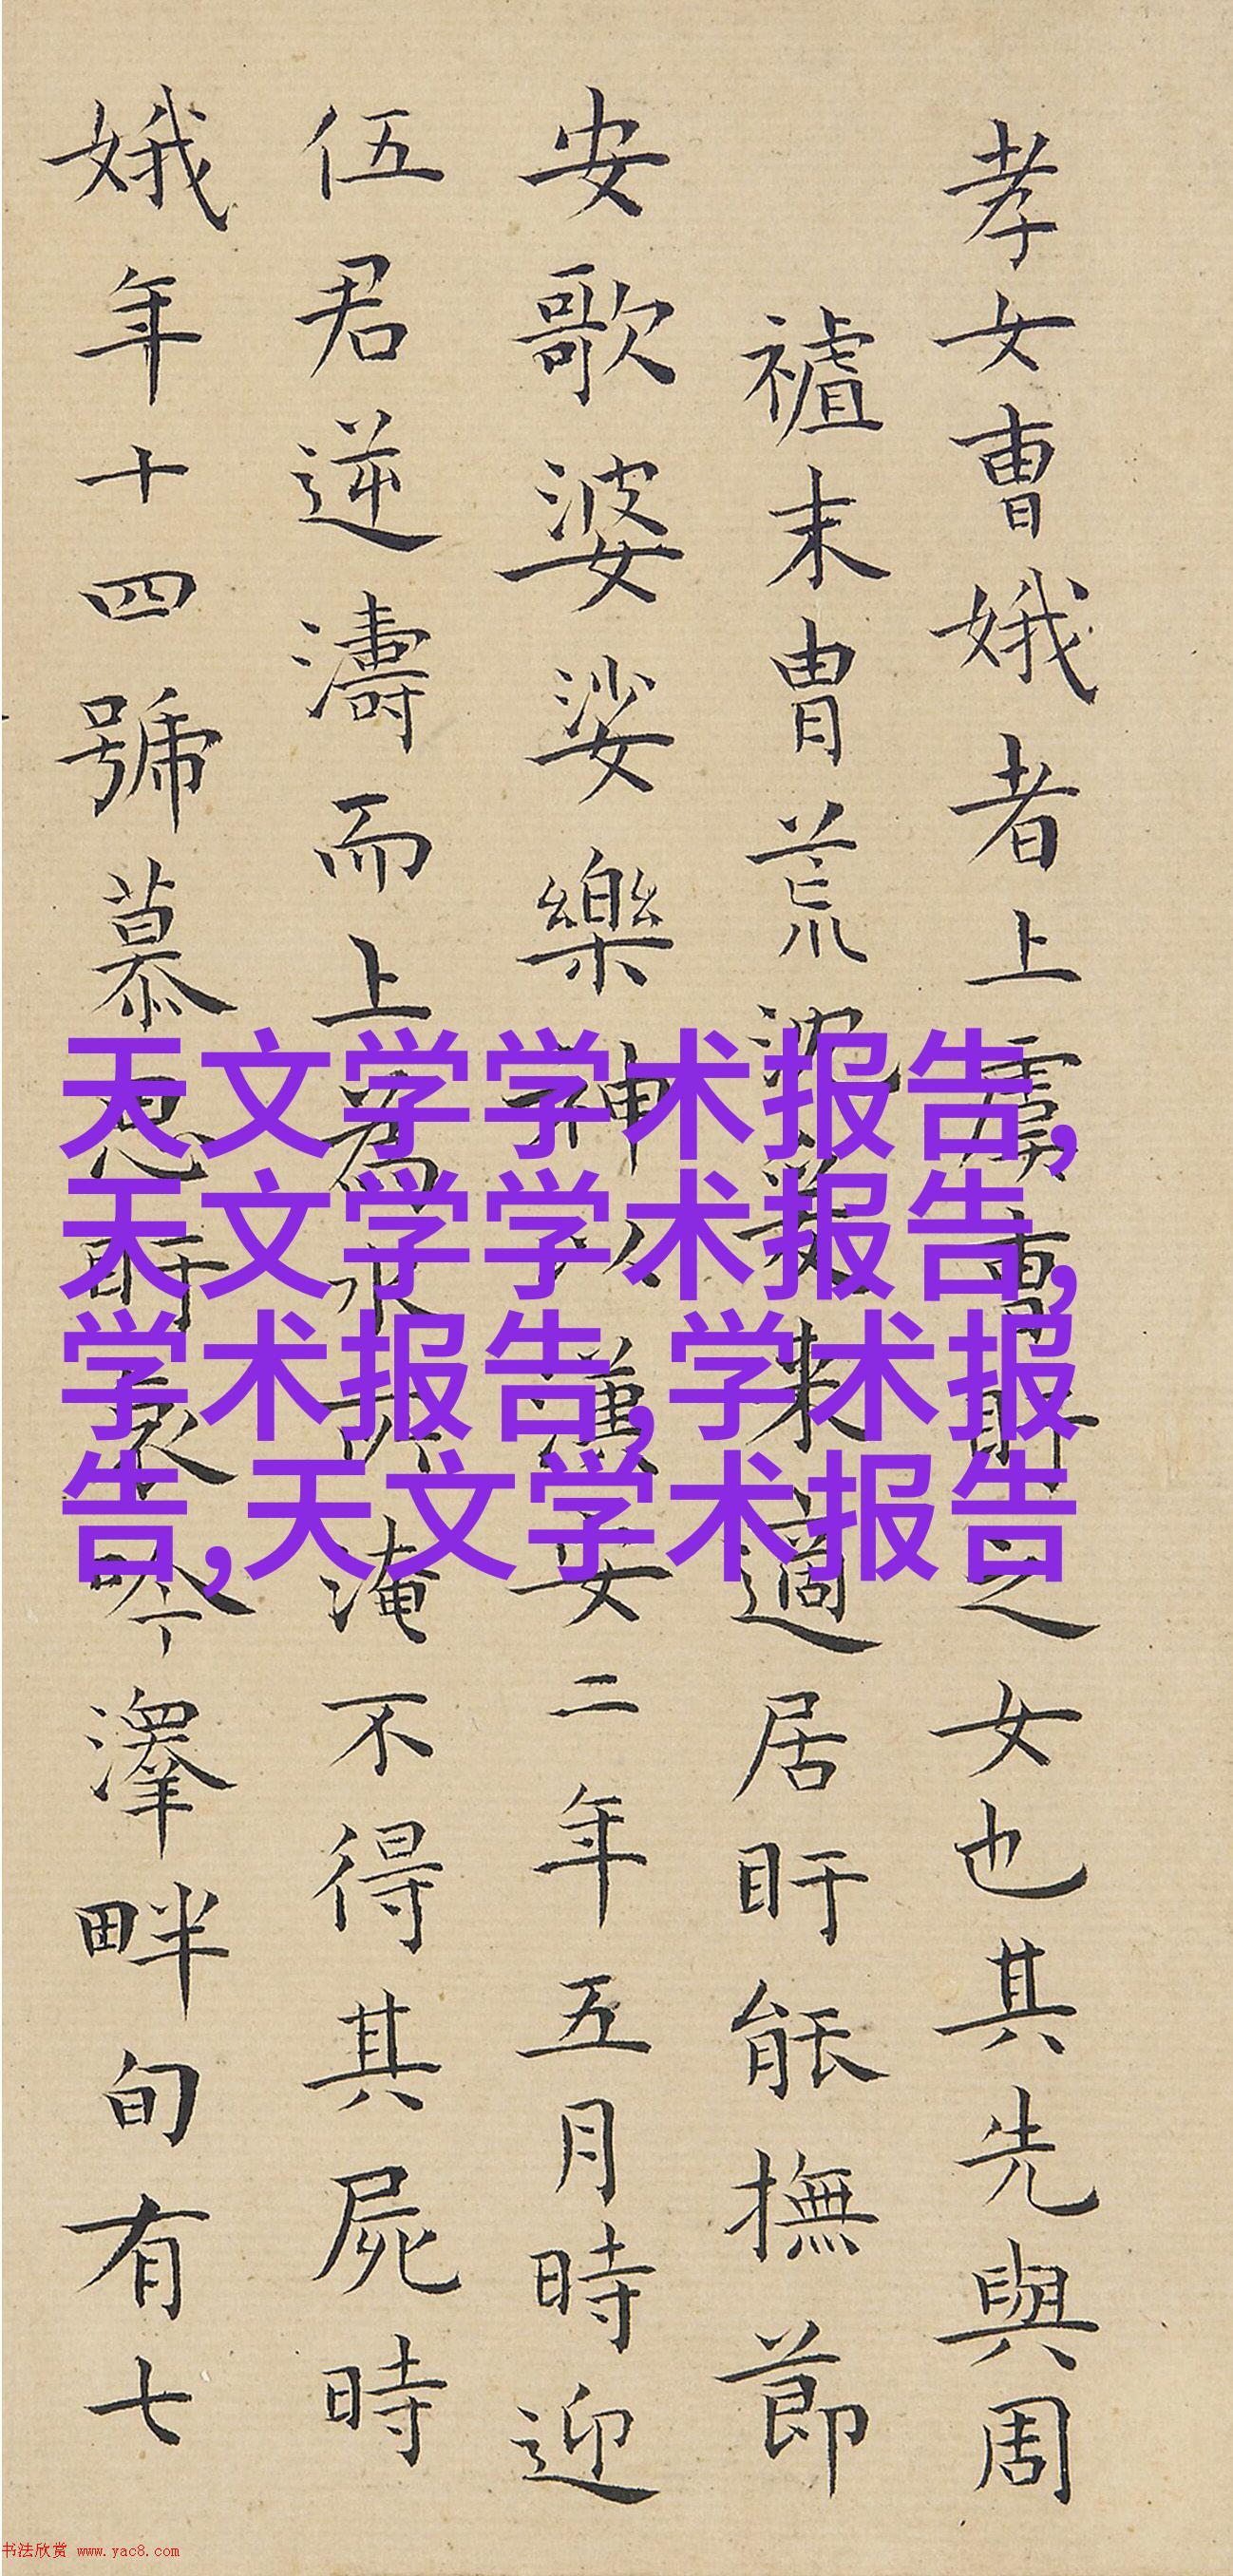 孝女曹娥者上虞曹盱之女也其先與周
末冑荒沈爰来適居盱能撫節
安歌婆娑樂神以漢安二年五月時迎
伍君逆濤而上為水所淹不得其屍時
娥年十四號慕思盱哀吟澤畔旬有七
天文学学术报告,
天文学学术报告,
学术报告,学术报
告,天文学术报告
书法欣赏 www.yac8.com